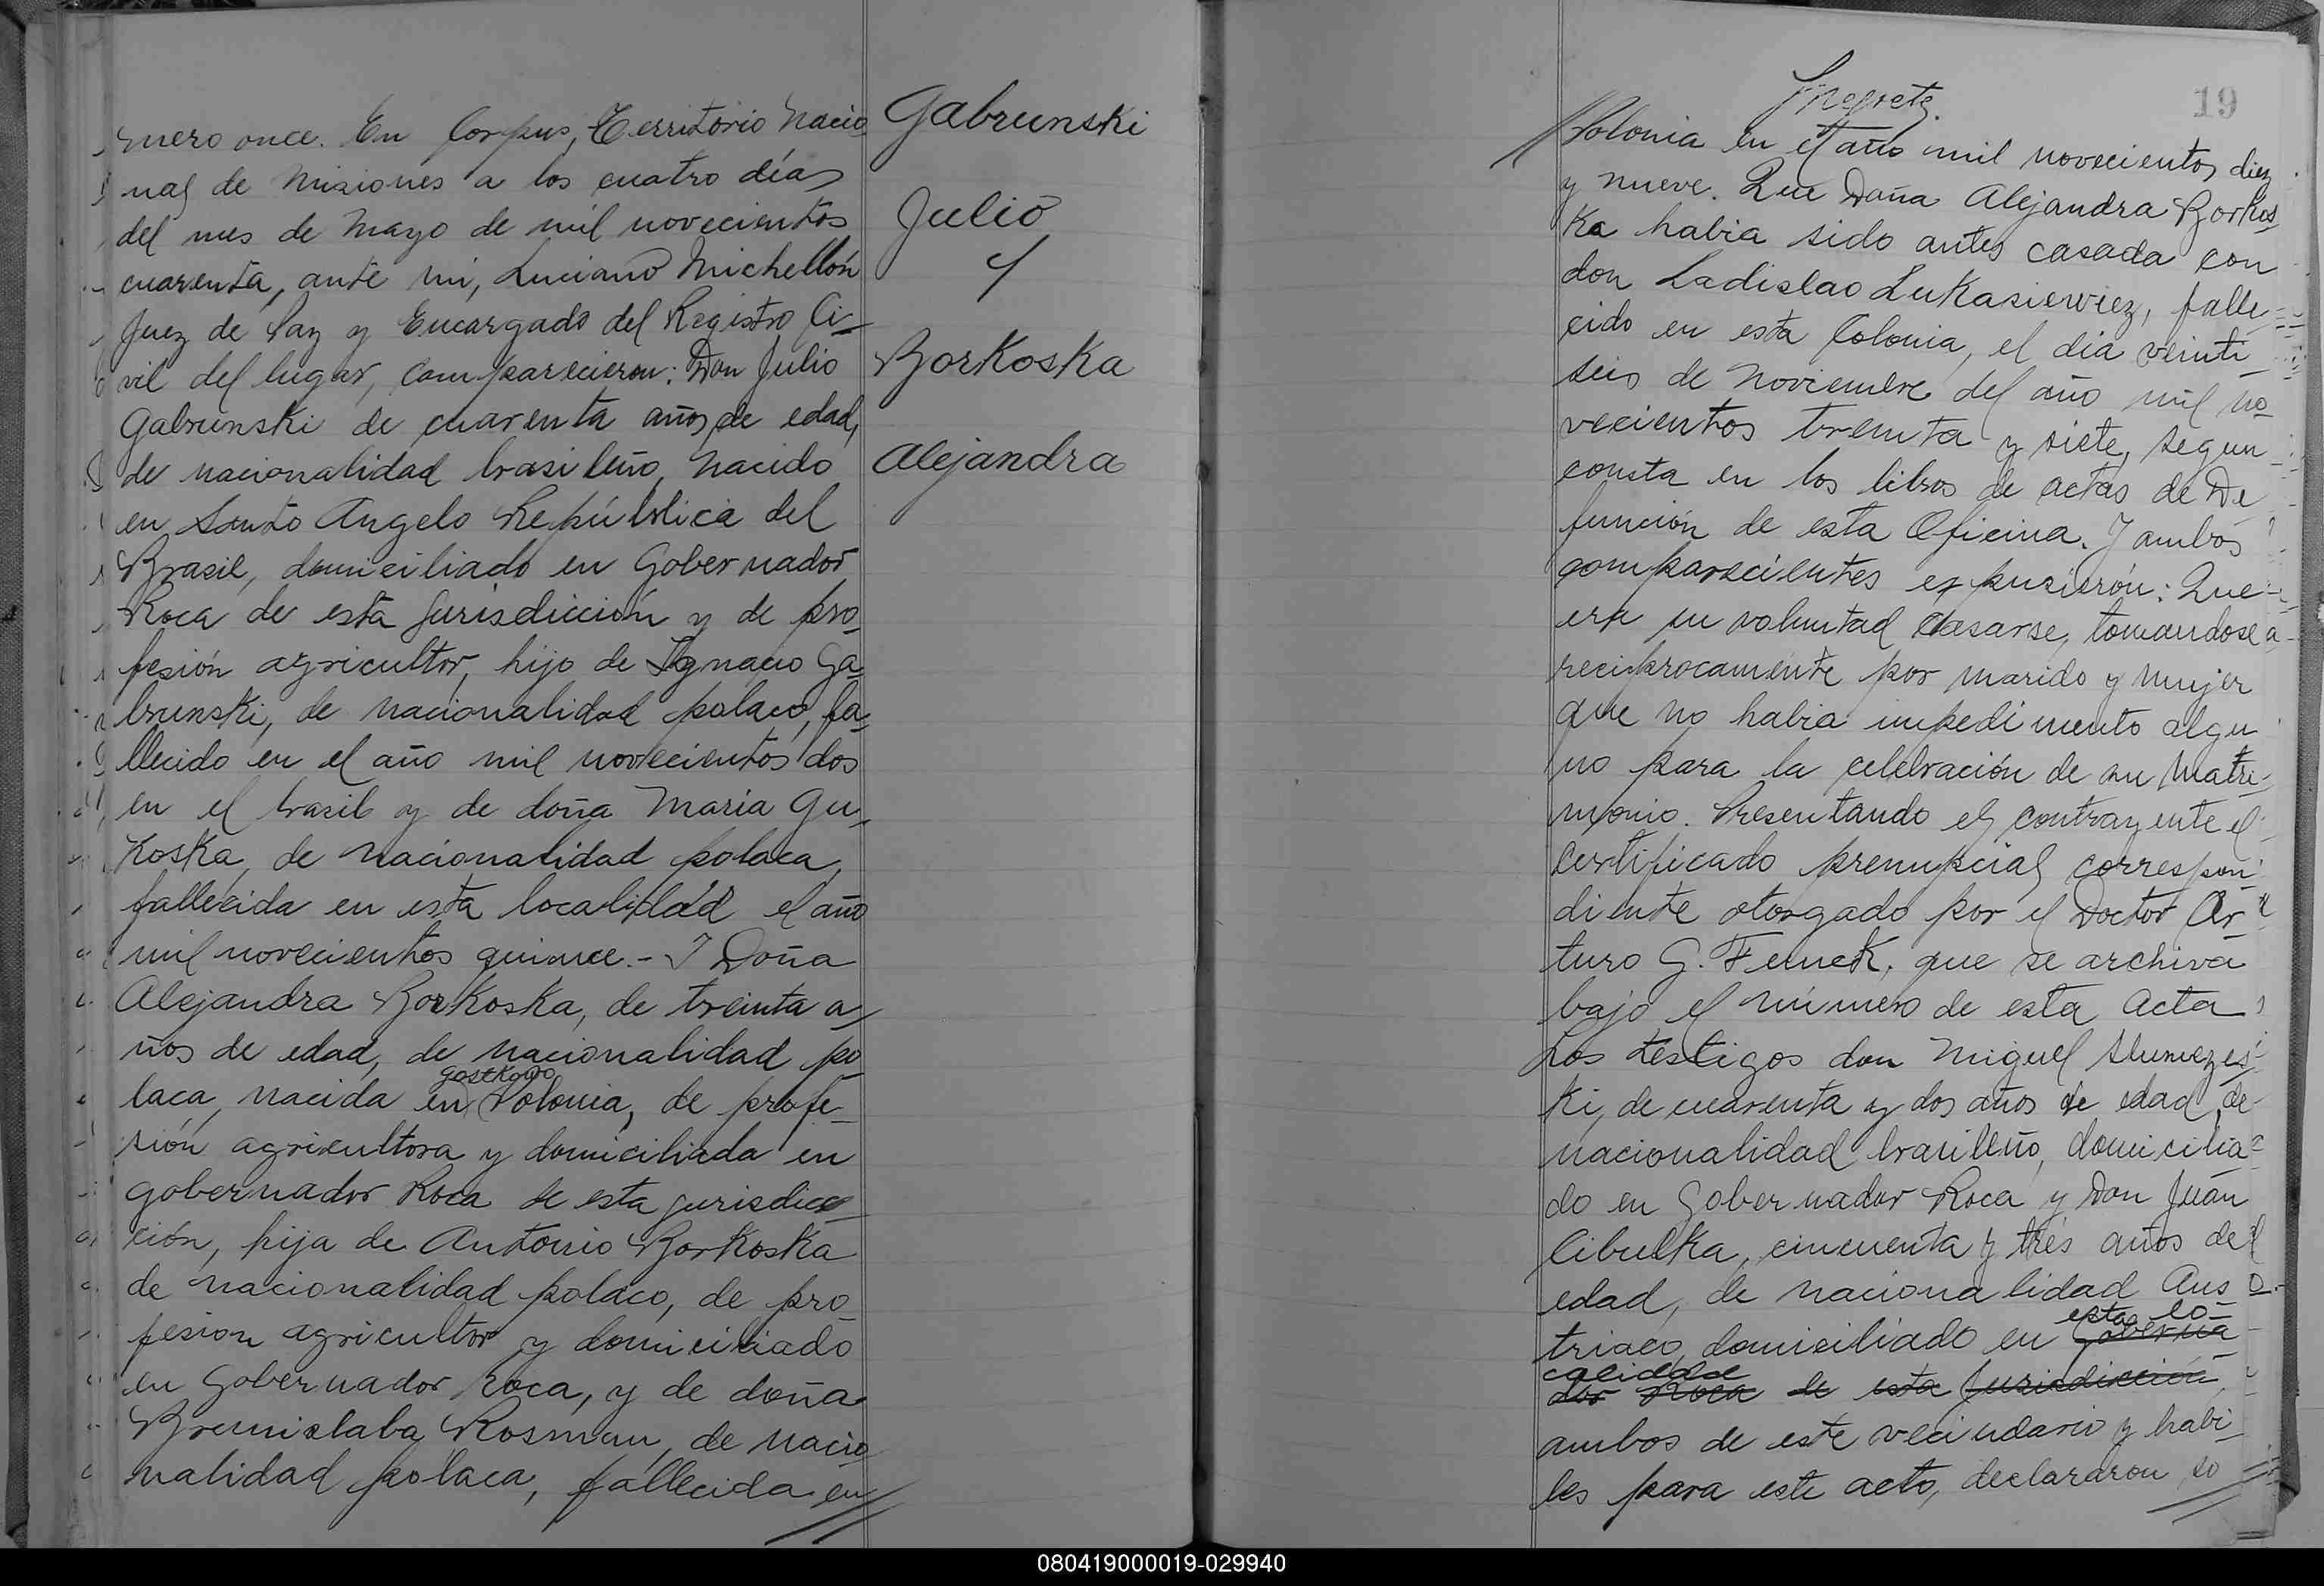 mero once. En Corpus, Territorio Nacio
nal de Misiones a los cuatro días
del mes de Mayo de mil novecientos
cuarenta, ante mi, Luciano Michellón
Juez de Paz y Encargado del Registro Ci-
vil del lugar, comparecieron: Don Julio
Gabrunski de cuarenta años de edad,
de nacionalidad brasileño, nacido
en Santo Angelo República del
Brasil, domiciliado en Gobernador
Roca de esta jurisdicción y de pro
fesión agricultor, hijo de Ignacio Ga
brunski, de nacionalidad polaco, fa-
llecido en el año mil novecientos dos
en el brasil y de doña Maria Gu-
koska, de nacionalidad polaca,
fallecida en esta localidad el año
mil novecientos quince.- Y Doña
Alejandra Borkoska, de treinta a
ños de edad, de nacionalidad po
gostkowo
laca, nacida en Polonia, de profe-
sión agricultora y domiciliada en
gobernador Roca de esta jurisdic
ción, hija de Antonio Borkoska
de nacionalidad polaco, de pro
fesion agricultor y domiciliado
en Gobernador Roca, y de doña
Bremislaba Rosman, de nacio
nalidad polaca, fallecida en
Gabrunski
Julio
y
Borkoska
Alejandra
19
Polonia en el año mil novecientos diez
y nueve. Que Doña Alejandra Borkos
ka habia sido antes casada con
don Ladislao Lukasiewiez, falle-
cido en esta Colonia, el dia veinti
seis de Noviembre del año mil no
vecientos treinta y siete, segun
consta en los libros de actas de De
función de esta Oficina. Y ambos
comparecientes expusierón: Que
era su voluntad casarse, tomandose a
reciprocamente por marido y mujer
que no habia impedimento algu
no para la celebración de su Matri-
monio. Presentando el contrayente el
certificado prenupcial correspon
diente otorgado por el Doctor Ar
turo G. que se archiva
bajo el número de esta Acta
Los testigos don Miguel
ki, de cuarenta y dos años de edad, de
nacionalidad brasileño, domicilia
do en Gobernador Roca y Don Juan
Cibulka, cincuenta y tres años de
edad, de nacionalidad Aus
esta lo-
triaco, domiciliado en Goberna
calidad
dor Roca de esta jurisdicción,
ambos de este vecindario y habi
les para este acto, declararon so
080419000019-029940